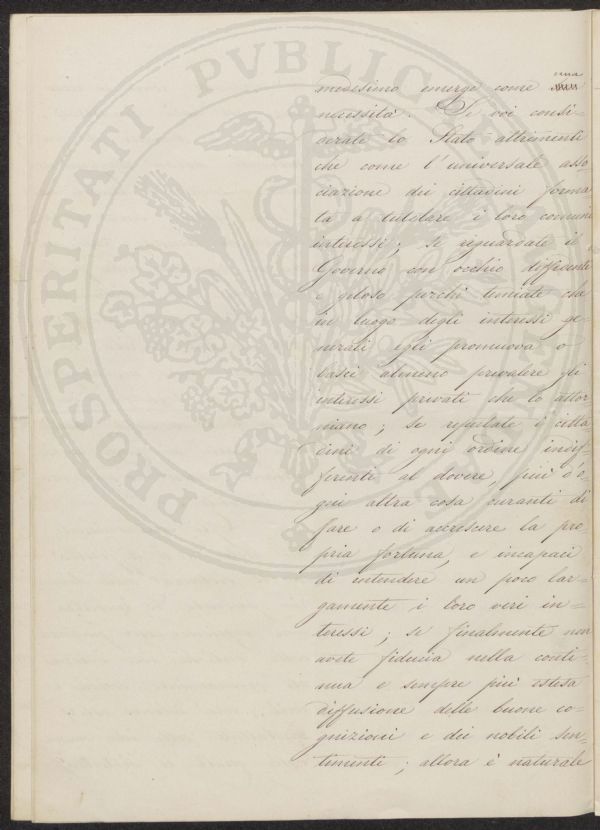 PROSPERITATI PVBLICAE
una
medesimo emerge come
necessità. Se voi consi=
derate lo Stato altrimenti
che come l'universale asso
ciazione dei cittadini forma
ta a tutelare i loro comuni
interessi; se riguardate il
Governo con occhio diffidente
e geloso perchè temiate che
in luogo degli interessi ge=
nerali egli promuova o
lasci almeno prevalere gli
interessi privati che lo attor
niano; se reputate i citta
dini di ogni ordine indif=
ferenti al dovere, più d'o=
gni altra cosa curanti di
fare o di accrescere la pro
pria fortuna, e incapaci
di intendere un poco lar=
gamente i loro veri in=
teressi; se finalmente non
avete fiducia nella conti=
nua e sempre più estesa
diffusione delle buone co=
gnizioni e dei nobili sen=
timenti; allora è naturale